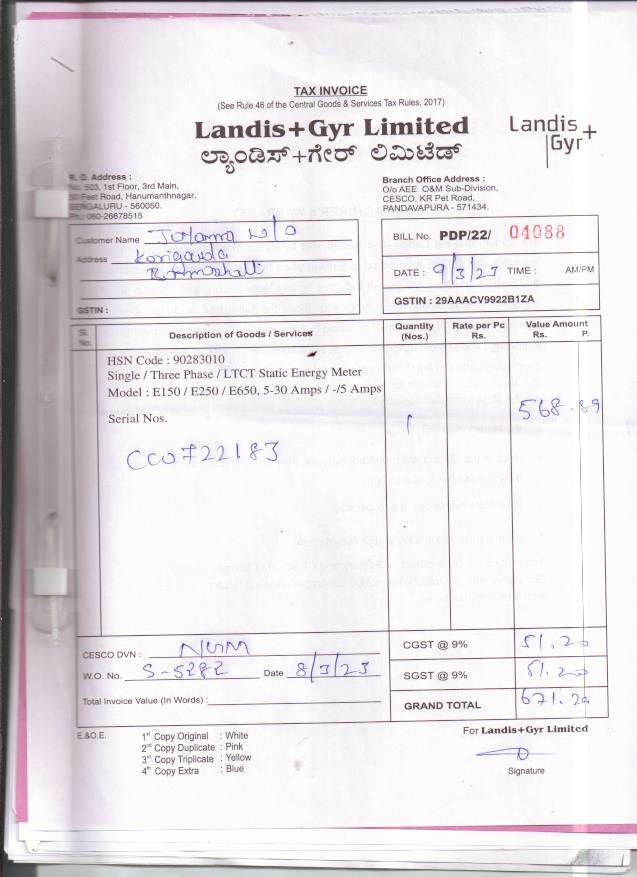 TAX INVOICE
(See Rule 46 of the Central Goods & Services Tax Rules, 2017)
Landis+Gyr Limited
ಲ್ಯಾಂಡಿಸ್+ಗೇರ್ ಲಿಮಿಟೆಡ್
Landis+
Gyr
R. O. Address :
No. 503, 1st Floor, 3rd Main,
50 Feet Road, Hanumanthnagar,
BENGALURU - 560050.
Ph.: 080-26678515
Branch Office Address :
O/o AEE O&M Sub-Division,
CESCO, KR Pet Road,
PANDAVAPURA - 571434.
Customer Name W/O
Address
GSTIN :
BILL No. PDP/22/ 04088
DATE : 9/3/23 TIME : AM/PM
GSTIN : 29AAACV9922B1ZA
Sl. No. Description of Goods / Services Quantity (Nos.) Rate per Pc Rs. Value Amount Rs. P.
HSN Code : 90283010
Single / Three Phase / LTCT Static Energy Meter
Model : E150 / E250 / E650, 5-30 Amps / -/5 Amps
Serial Nos. 1 568.89
CCO722183
CESCO DVN : NGM
W.O. No. S-5282 Date 8/3/23
Total Invoice Value (In Words) :
CGST @ 9% 51.20
SGST @ 9% 51.20
GRAND TOTAL 671.29
E.&O.E.
1st Copy Original : White
2nd Copy Duplicate : Pink
3rd Copy Triplicate : Yellow
4th Copy Extra : Blue
For Landis+Gyr Limited
Signature